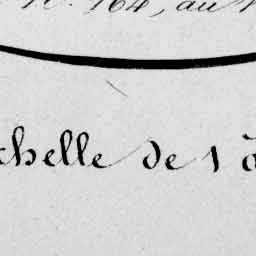 N. 164, au
chelle de 1 à